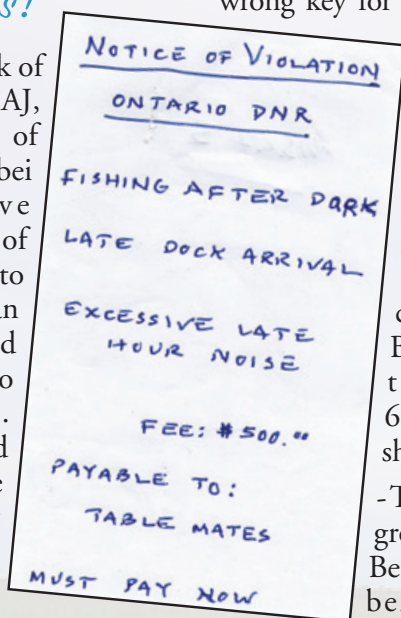 s!
wrong key for
k of
AJ,
of
bei
ve
of
to
an
d
o
.
d
e
NOTICE OF VIOLATION
ONTARIO DNR
FISHING AFTER DARK
LATE DOCK ARRIVAL
EXCESSIVE LATE
HOUR NOISE
FEE: $500.00
PAYABLE TO:
TABLE MATES
MUST PAY NOW
c
B
t
6
sh
-T
gro
Be
be